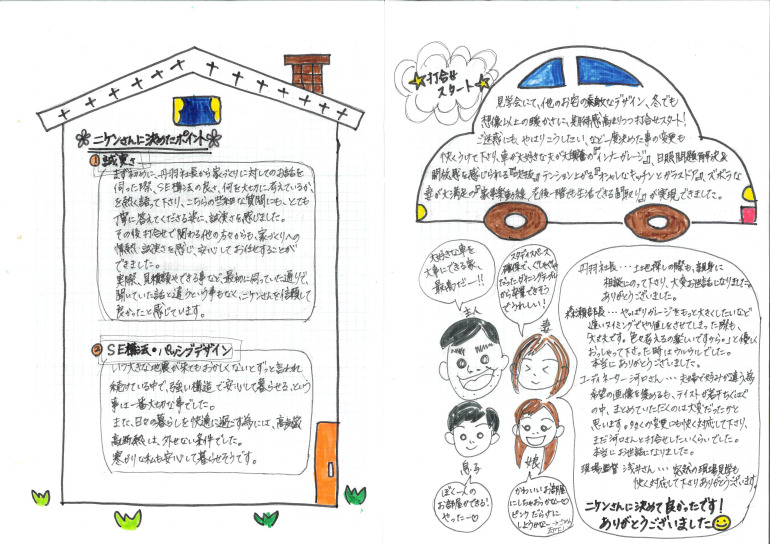 ニケンさんに決めたポイント
① 誠実さ
まず初めに、丹羽社長から家づくりに対してのお話を
伺った際、SE構法の良さ、何を大切に考えているか、
を熱く語って下さり、こちらの些細な質問にも、とても
丁寧に答えてくださる姿に、誠実さを感じました。
その後打合せで関わる他の方々からも、家づくりへの
情熱、誠実さを感じ、安心してお任せすることが
できました。
実際、見積額やできる事など、最初に伺っていた通りで、
聞いていた話と違うという事もなく、ニケンさんを信頼して
良かったと感じています。
② SE構法・パッシブデザイン
いつ大きな地震が来てもおかしくないとずっと言われ
続けている中で、強い構造で安心して暮らせる、という
事は一番大切な事でした。
また、日々の暮らしを快適に過ごす為には、高気密
高断熱は、外せない条件でした。
寒がりな私も安心して暮らせそうです。
打合せ
スタート
見学会にて、他のお宅の素敵なデザイン、冬でも
想像以上の暖かさに、期待感高まりつつ打合せスタート!
ご迷惑にも、やはりこうしたい、など一度決めた事の変更も
快くうけて下さり、車が大好きな夫が大興奮の『インナーガレージ』、目隠問題解決&
開放感を感じられる『中庭』、テンション上がる『オシャレなキッチンとガラスドア』、ズボラな
妻が大満足の『家事楽動線、老後一階で生活できる間取り』が実現できました。
大好きな車を
大事にできる家、
最高だゼー!!
主人
スタディスペース
確保で、ぐしゃぐしゃ
だったダイニングテーブル
から卒業できそうで
うれしい!
妻
息子
ぼく一人の
お部屋ができる!
やったー♡
娘
かわいいお部屋
にしちゃおうかな〜♡
ピンクだらけに
しようかなー
丹羽社長…土地探しの際も、親身に
相談にのって下さり、大変お世話になりました。
ありがとうございました。
森瀬部長…やっぱりガレージをもっと大きくしたいなど
遅いタイミングでやり直しをさせてしまった際も、
大丈夫です。色々考えるの楽しいですから。と優しく
おっしゃって下さった時はウルウルでした。
本当にありがとうございました。
コーディネーター河口さん…夫婦で好みが違う為
希望の画像を集めるも、テイストが若干ちぐはぐ
の中、まとめていただくのは大変だったかと
思います。多々の変更にも快く対応して下さり、
まだ河口さんと打合せしたいくらいでした。
本当にお世話になりました。
現場監督 浅井さん…突然の現場見学も
快く対応して下さりありがとうございます。
ニケンさんに決めて良かったです!
ありがとうございました